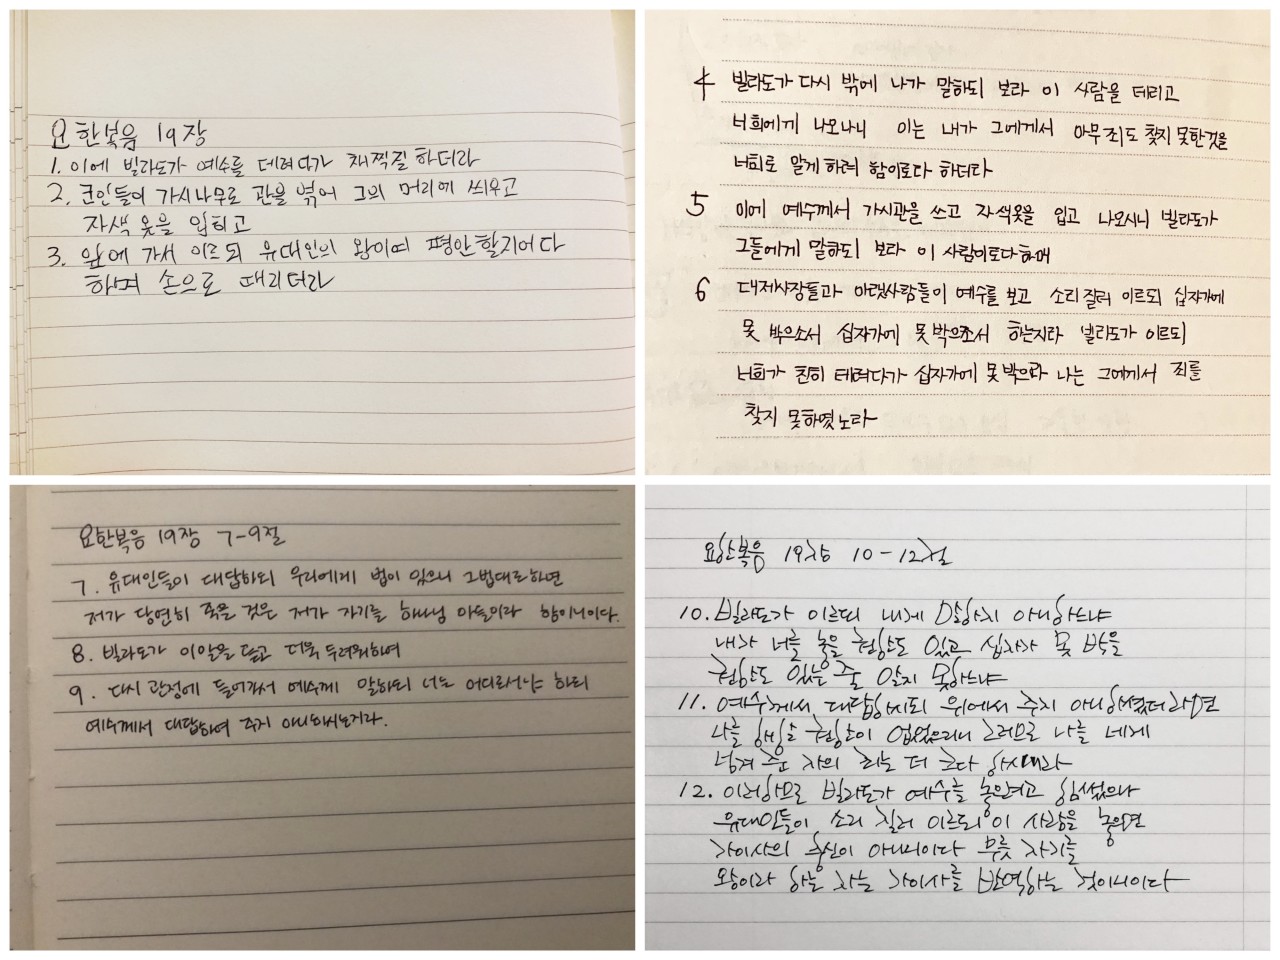 요한복음 19장
1. 이에 빌라도가 예수를 데려다가 채찍질 하더라
2. 군인들이 가시나무로 관을 엮어 그의 머리에 씌우고
자색 옷을 입히고
3. 앞에 가서 이르되 유대인의 왕이여 평안할지어다
하며 손으로 때리더라
4 빌라도가 다시 밖에 나가 말하되 보라 이 사람을 데리고
너희에게 나오나니 이는 내가 그에게서 아무 죄도 찾지 못한것을
너희로 알게 하려 함이로다 하더라
5 이에 예수께서 가시관을 쓰고 자색옷을 입고 나오시니 빌라도가
그들에게 말하되 보라 이 사람이로다하매
6 대제사장들과 아랫사람들이 예수를 보고 소리질러 이르되 십자가에
못 박으소서 십자가에 못 박으소서 하는지라 빌라도가 이르되
너희가 친히 데려다가 십자가에 못 박으라 나는 그에게서 죄를
찾지 못하였노라
요한복음 19장 7-9절
7. 유대인들이 대답하되 우리에게 법이 있으니 그법대로하면
저가 당연히 죽을 것은 저가 자기를 하나님 아들이라 함이니이다.
8. 빌라도가 이말을 듣고 더욱 두려워하여
9. 다시 관정에 들어가서 예수께 말하되 너는 어디로서냐 하되
예수께서 대답하여 주지 아니하시는지라.
요한복음 19장 10-12절
10. 빌라도가 이르되 내게 말하지 아니하느냐
내가 너를 놓을 권한도 있고 십자가 못 박을
권한도 있는 줄 알지 못하느냐
11. 예수께서 대답하시되 위에서 주지 아니하셨더라면
나를 해할 권한이 없었으리니 그러므로 나를 네게
넘겨 준 자의 죄는 더 크다 하시더라
12. 이러하므로 빌라도가 예수를 놓으려고 힘썼으나
유대인들이 소리 질러 이르되 이 사람을 놓으면
가이사의 충신이 아니니이다 무릇 자기를
왕이라 하는 자는 가이사를 반역하는 것이니이다